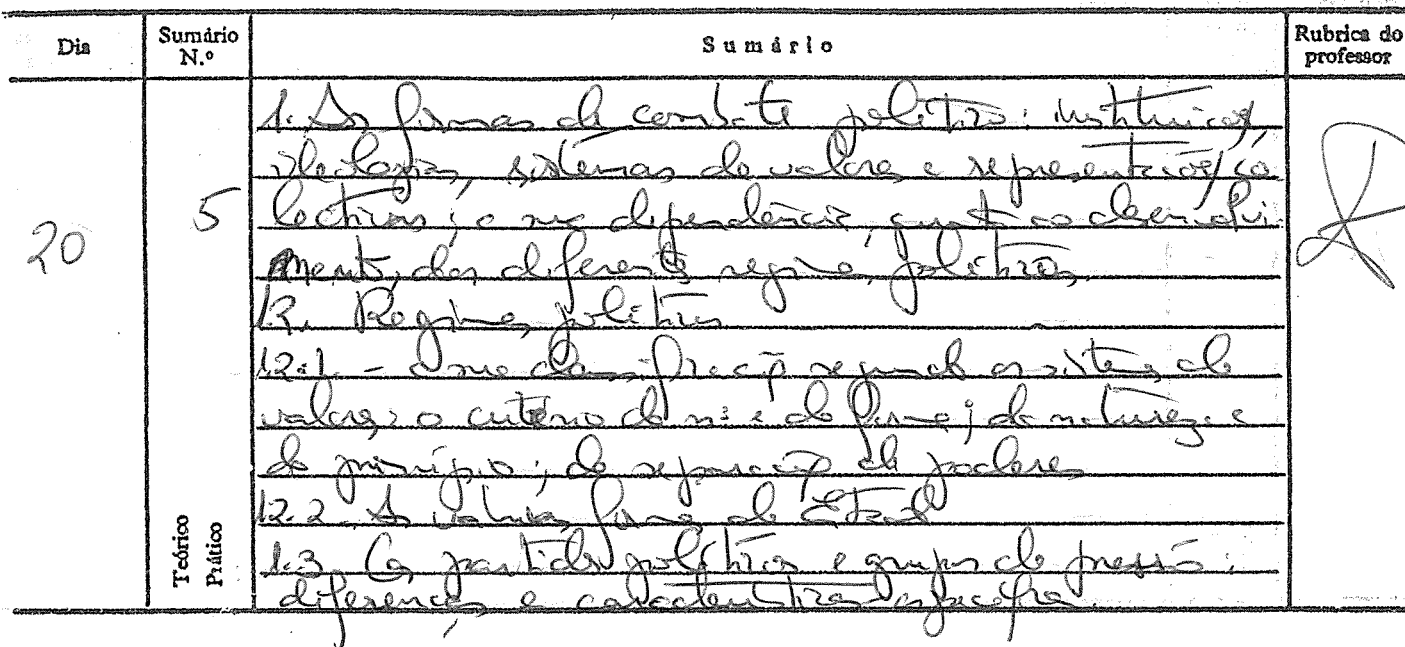 Dia Sumário N.º Sumário Rubrica do professor
1. As formas de combate político: instituições,
ideologias, sistemas de valores e representações co
lectivas; a sua dependência quanto ao desenvolvi
mento dos diferentes regimes políticos
20 5
1.2. Regimes políticos
1.2.1 - A sua classificação segundo os sistemas de
valores; o critério do nº e da forma; da natureza e
do princípio; da separação de poderes
1.2.2. As várias formas de Estado
1.3. Os partidos políticos e grupos de pressão:
diferenças e características
Teórico
Prático